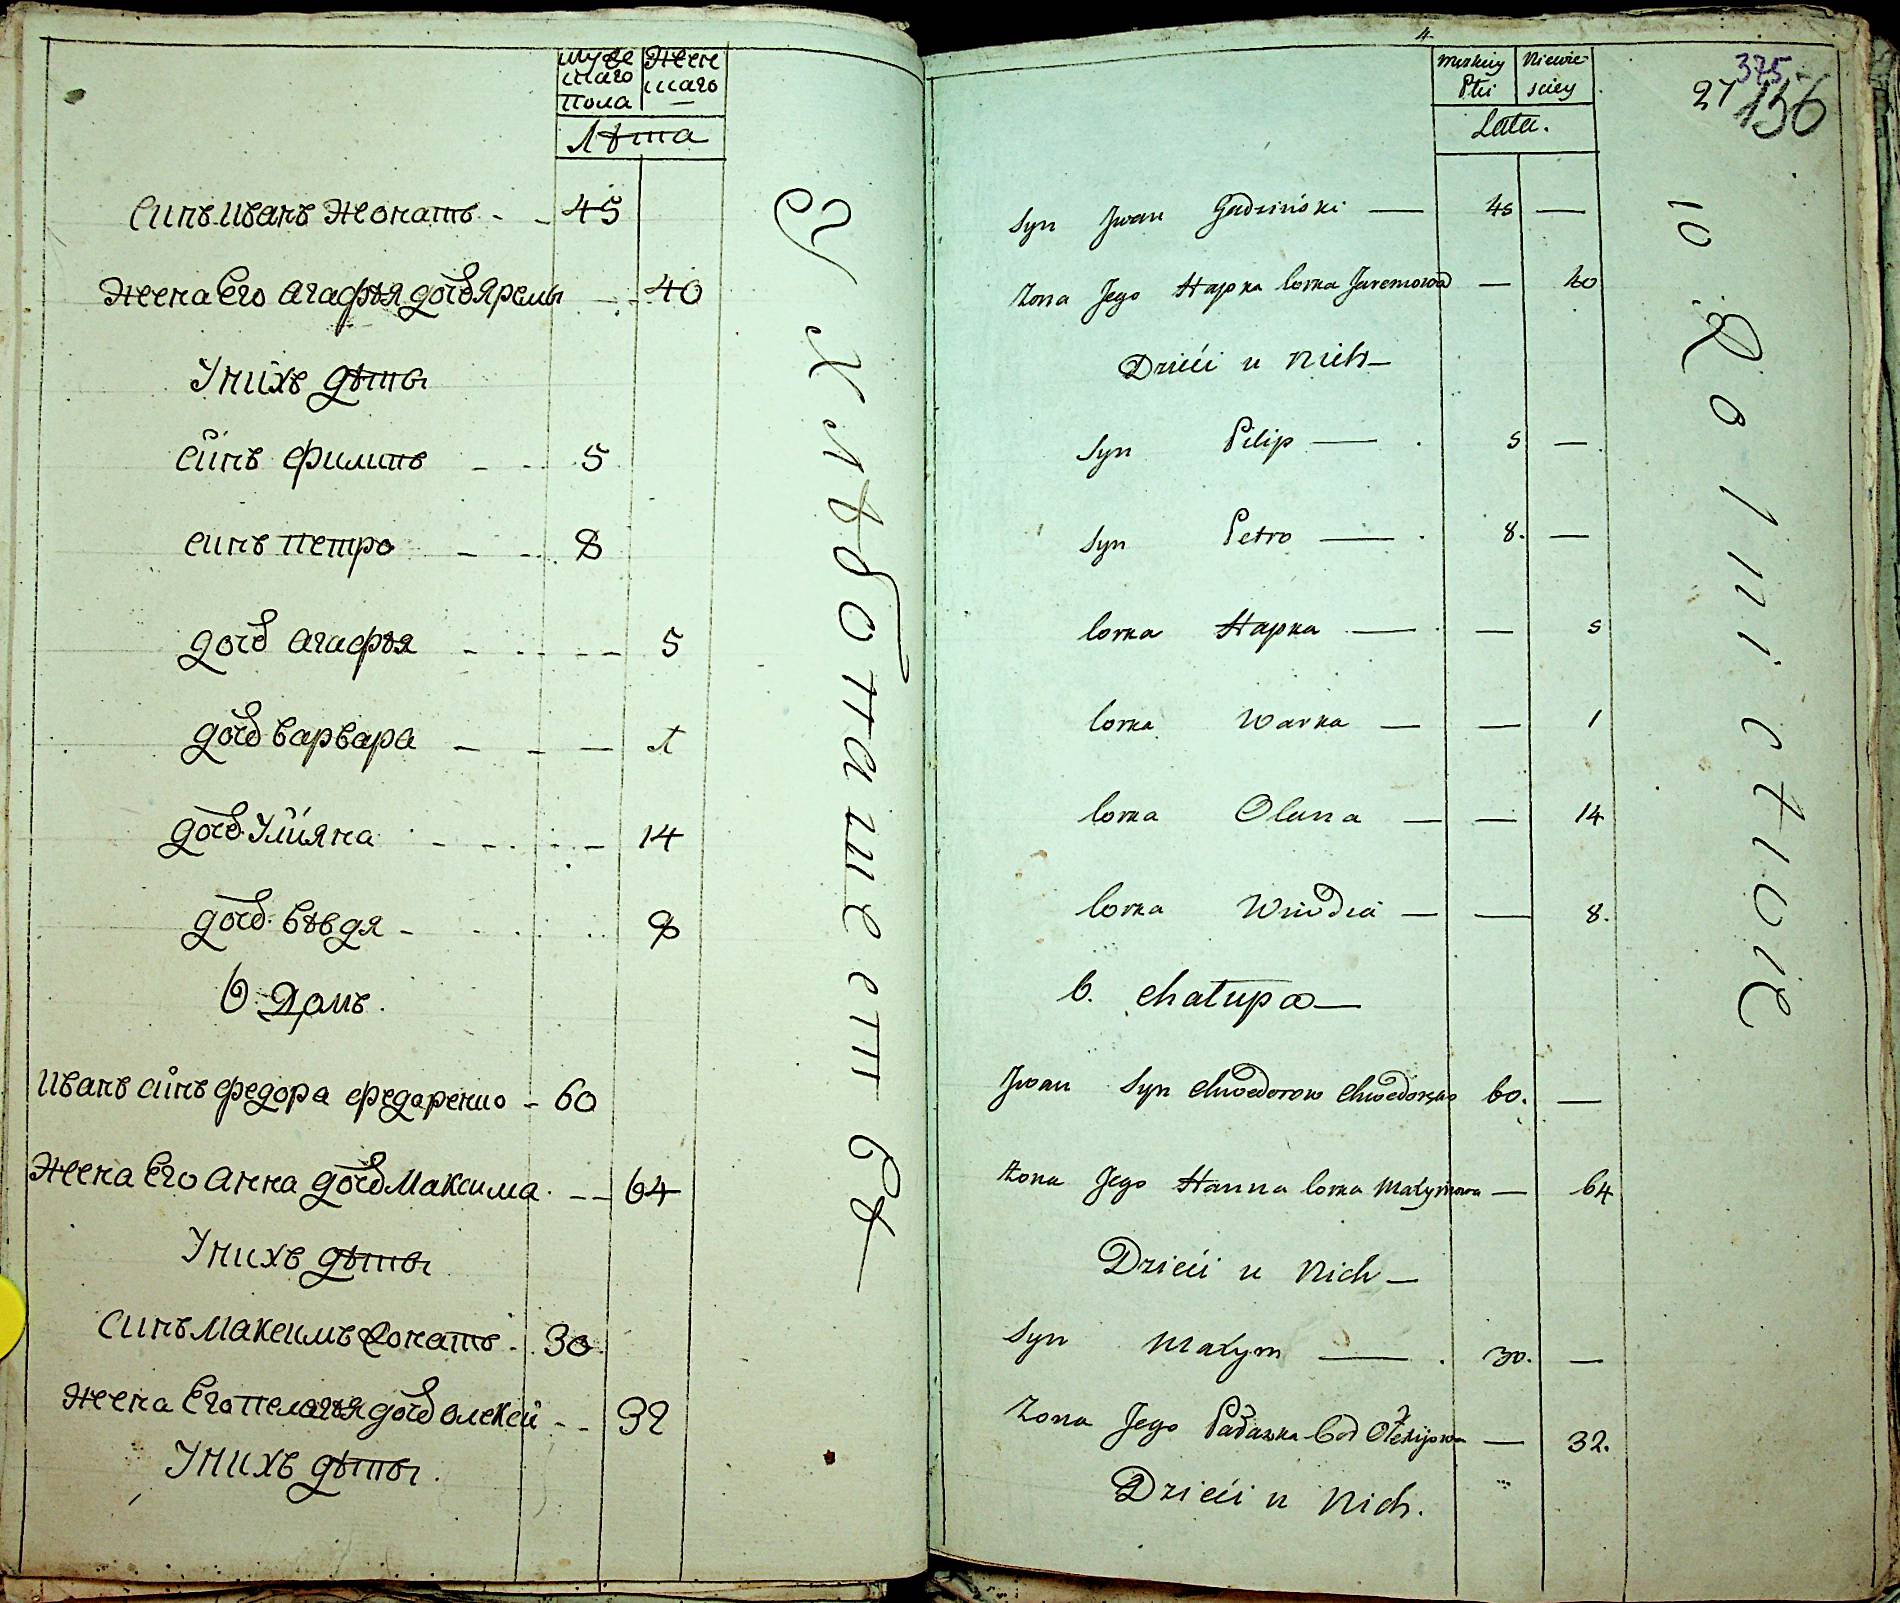 муже
скаго
пола
Жен
скаго
Лѣта
Синъ Иванъ Жонатъ 45
Жена Его Агафѣя дочь Яремы 40
У нихъ дѣты
Синъ Филипъ 5
Синъ Петро 8
дочь Агафѣя 5
дочь Варвара 1
дочь Улияна 14
дочь Вѣвдя 8
6. Домъ.
Иванъ синъ Федора Федаренко 60
Жена Его Анна дочь Максима 64
У нихъ дѣты
Синъ Максимъ Жонатъ 30
Жена Его Пелагѣя дочь Олексей 32
У нихъ дѣты.
У Хлѣбопашест вѣ
4
Męzkiey
Płci
Niewie-
sciey
Lata.
375
27
136
Syn Jwan Gadziński — 45 —
Żona Jego Hapka Corka Jaremowa — 40
Dzieći u Nich —
Syn Pilip — 5 —
Syn Petro — 8. —
Corka Hapka — — 5
Corka Warka — — 1
Corka Olana — — 14
Corka Wiwdia — — 8.
6. Chałupa —
Jwan Syn Chwedorow Chwedorenko 60. —
Żona Jego Hanna Corka Maxymowa — 64
Dzieći u Nich —
Syn Maxym — 30. —
Żona Jego Pałaszka Cor Ołexijowa — 32.
Dzieći u Nich.
10 Rolnictwie